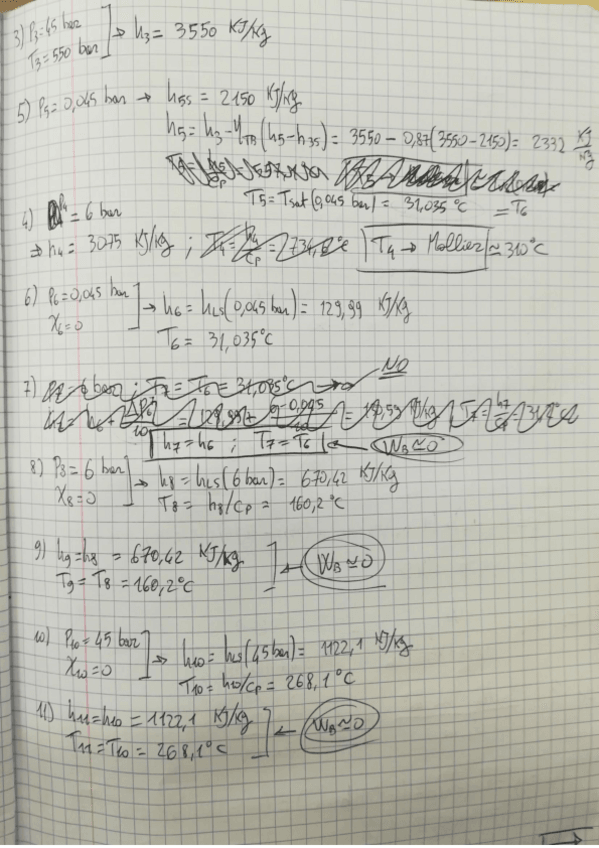 3) P3=45 bar
T3=550 bar ] → h3 = 3550 KJ/Kg
5) P5=0,045 bar → h5s = 2150 KJ/Kg
h5= h3-ηTB (h5-h35) = 3550 - 0,87(3550-2150)= 2332 KJ/Kg
T5=Tsat(0,045 bar) = 31,035 °C = T6
4) P4 = 6 bar
⇒ h4 = 3075 KJ/Kg ; T4 → Mollier ≃ 310°C
6) P6=0,045 bar
X6=0 ] → h6 = hLS(0,045 bar) = 129,99 KJ/Kg
T6 = 31,035°C
7) P7 = 6 bar ; T7 = T6 = 31,035°C → NO
h7=h6 ; T7=T6 ← WB≃0
8) P8=6 bar
X8=0 ] → h8 = hLS(6 bar) = 670,42 KJ/Kg
T8 = h8/Cp = 160,2°C
9) h9=h8 = 670,42 KJ/Kg
T9 = T8 = 160,2°C ] ← WB≃0
10) P10=45 bar
X10=0 ] → h10 = hLS(45 bar) = 1122,1 KJ/Kg
T10 = h10/Cp = 268,1°C
11) h11=h10 = 1122,1 KJ/Kg
T11=T10 = 268,1°C ] ← WB≃0